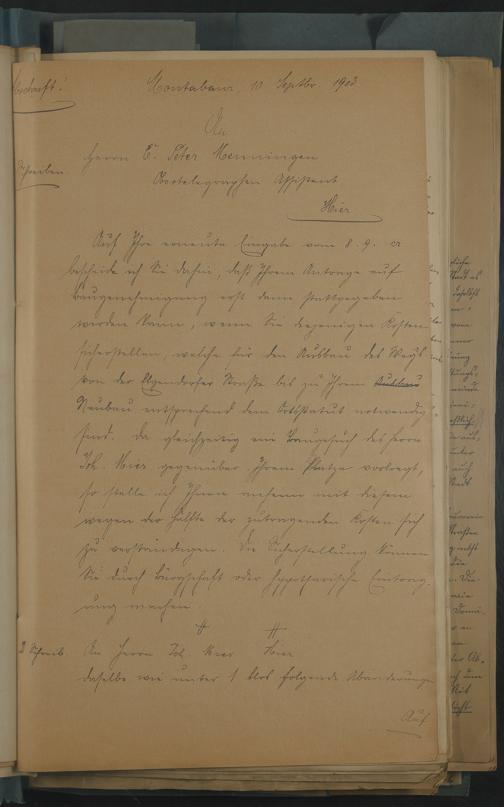 Abschrift!
Montabaur, 10 Septbr. 1903
An
Schreiben
Herrn C. Peter Menningen
Obertelegraphen Assistent
Hier
Auf Ihre erneute Eingabe vom 8. 9. cr
bescheide ich Sie dahin, daß Ihrem Antrage auf
Baugenehmigung erst dann stattgegeben
werden kann, wenn Sie diejenigen Kosten
sicherstellen, welche für den Ausbau des Wegs
von der Elgendorfer Straße bis zu Ihrem
Neubau entsprechend dem Ortsstatut notwendig
sind. Da gleichzeitig ein Baugesuch des Herrn
Joh. gegenüber Ihrem Platze vorliegt,
so stelle ich Ihnen anheim mit diesem
wegen der Hälfte der zutragenden Kosten sich
zu verständigen. Die Sicherstellung können
Sie durch Bürgschaft oder hypothekarische Eintrag-
ung machen
2 Schreib An Herrn Joh. Hier
daselbe wie unter 1 blos folgende Abänderungen
Auf